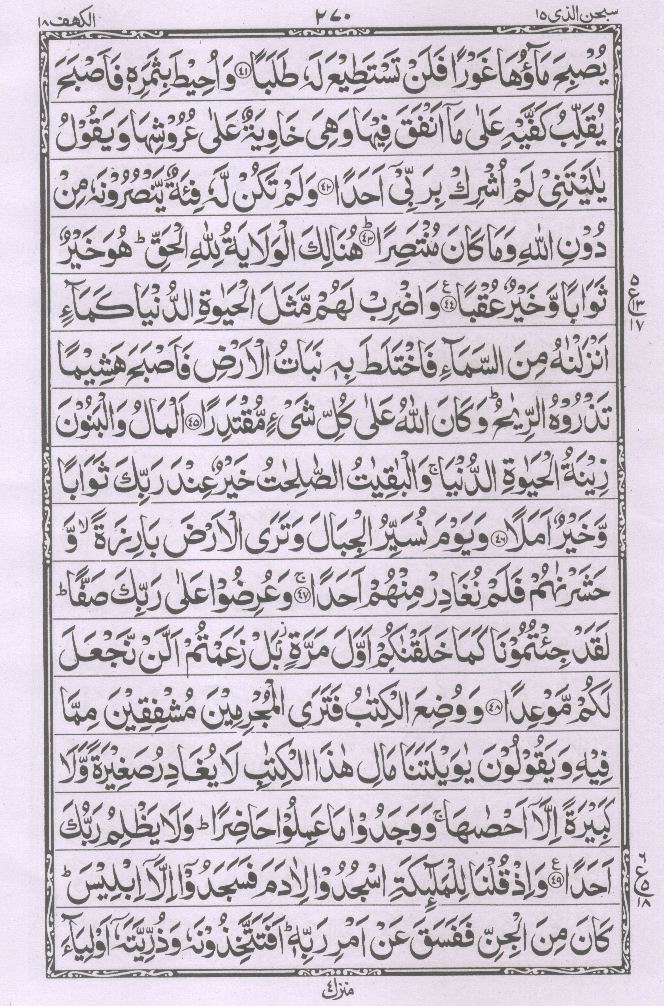 سبحن الذی ۱۵
۲۷۰
الكهف ۱۸
يُصْبِحَ مَآؤُهَا غَوْرًا فَلَنْ تَسْتَطِيْعَ لَهٗ طَلَبًا ﴿۴۱﴾ وَاُحِيْطَ بِثَمَرِهٖ فَاَصْبَحَ
يُقَلِّبُ كَفَّيْهِ عَلٰى مَآ اَنْفَقَ فِيْهَا وَهِىَ خَاوِيَةٌ عَلٰى عُرُوْشِهَا وَيَقُوْلُ
يٰلَيْتَنِىْ لَمْ اُشْرِكْ بِرَبِّىْٓ اَحَدًا ﴿۴۲﴾ وَلَمْ تَكُنْ لَّهٗ فِئَةٌ يَّنْصُرُوْنَهٗ مِنْ
دُوْنِ اللّٰهِ وَمَا كَانَ مُنْتَصِرًا ﴿۴۳﴾ؕ هُنَالِكَ الْوَلَايَةُ لِلّٰهِ الْحَقِّ ؕ هُوَ خَيْرٌ
ثَوَابًا وَّخَيْرٌ عُقْبًا ﴿۴۴﴾ۧ وَاضْرِبْ لَهُمْ مَّثَلَ الْحَيٰوةِ الدُّنْيَا كَمَآءٍ
اَنْزَلْنٰهُ مِنَ السَّمَآءِ فَاخْتَلَطَ بِهٖ نَبَاتُ الْاَرْضِ فَاَصْبَحَ هَشِيْمًا
تَذْرُوْهُ الرِّيٰحُ ؕ وَكَانَ اللّٰهُ عَلٰى كُلِّ شَىْءٍ مُّقْتَدِرًا ﴿۴۵﴾ اَلْمَالُ وَالْبَنُوْنَ
زِيْنَةُ الْحَيٰوةِ الدُّنْيَا ۚ وَالْبٰقِيٰتُ الصّٰلِحٰتُ خَيْرٌ عِنْدَ رَبِّكَ ثَوَابًا
وَّخَيْرٌ اَمَلًا ﴿۴۶﴾ وَيَوْمَ نُسَيِّرُ الْجِبَالَ وَتَرَى الْاَرْضَ بَارِزَةً ۙ وَّ
حَشَرْنٰهُمْ فَلَمْ نُغَادِرْ مِنْهُمْ اَحَدًا ﴿۴۷﴾ۚ وَعُرِضُوْا عَلٰى رَبِّكَ صَفًّا ؕ
لَقَدْ جِئْتُمُوْنَا كَمَا خَلَقْنٰكُمْ اَوَّلَ مَرَّةٍ ز بَلْ زَعَمْتُمْ اَلَّنْ نَّجْعَلَ
لَكُمْ مَّوْعِدًا ﴿۴۸﴾ وَوُضِعَ الْكِتٰبُ فَتَرَى الْمُجْرِمِيْنَ مُشْفِقِيْنَ مِمَّا
فِيْهِ وَيَقُوْلُوْنَ يٰوَيْلَتَنَا مَالِ هٰذَا الْكِتٰبِ لَا يُغَادِرُ صَغِيْرَةً وَّلَا
كَبِيْرَةً اِلَّآ اَحْصٰىهَا ۚ وَوَجَدُوْا مَا عَمِلُوْا حَاضِرًا ؕ وَلَا يَظْلِمُ رَبُّكَ
اَحَدًا ﴿۴۹﴾ۧ وَاِذْ قُلْنَا لِلْمَلٰٓئِكَةِ اسْجُدُوْا لِاٰدَمَ فَسَجَدُوْٓا اِلَّآ اِبْلِيْسَ ؕ
كَانَ مِنَ الْجِنِّ فَفَسَقَ عَنْ اَمْرِ رَبِّهٖ ؕ اَفَتَتَّخِذُوْنَهٗ وَذُرِّيَّتَهٗٓ اَوْلِيَآءَ
۵
ع ۱۳
۱۷
۶
ع ۵
۱۸
منزل ۴